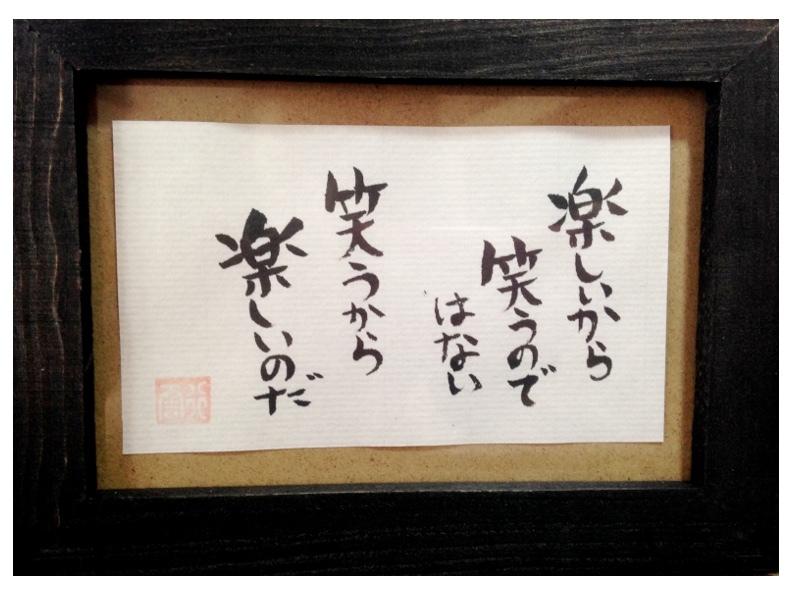 楽しいから
笑うので
はない
笑うから
楽しいのだ